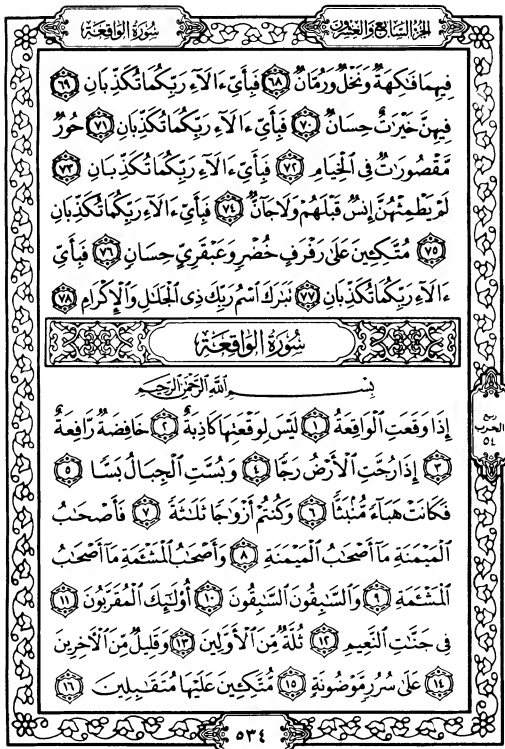 الجزء السابع والعشرون
سورة الواقعة
فِيهِمَا فَٰكِهَةٌ وَنَخْلٌ وَرُمَّانٌ ٦٨ فَبِأَيِّ ءَالَآءِ رَبِّكُمَا تُكَذِّبَانِ ٦٩
فِيهِنَّ خَيْرَٰتٌ حِسَانٌ ٧٠ فَبِأَيِّ ءَالَآءِ رَبِّكُمَا تُكَذِّبَانِ ٧١ حُورٌ
مَّقْصُورَٰتٌ فِى ٱلْخِيَامِ ٧٢ فَبِأَيِّ ءَالَآءِ رَبِّكُمَا تُكَذِّبَانِ ٧٣
لَمْ يَطْمِثْهُنَّ إِنسٌ قَبْلَهُمْ وَلَا جَآنٌّ ٧٤ فَبِأَيِّ ءَالَآءِ رَبِّكُمَا تُكَذِّبَانِ
٧٥ مُتَّكِـِٔينَ عَلَىٰ رَفْرَفٍ خُضْرٍ وَعَبْقَرِىٍّ حِسَانٍ ٧٦ فَبِأَيِّ
ءَالَآءِ رَبِّكُمَا تُكَذِّبَانِ ٧٧ تَبَٰرَكَ ٱسْمُ رَبِّكَ ذِى ٱلْجَلَٰلِ وَٱلْإِكْرَامِ ٧٨
سورة الواقعة
بِسْمِ ٱللَّهِ ٱلرَّحْمَٰنِ ٱلرَّحِيمِ
إِذَا وَقَعَتِ ٱلْوَاقِعَةُ ١ لَيْسَ لِوَقْعَتِهَا كَاذِبَةٌ ٢ خَافِضَةٌ رَّافِعَةٌ
٣ إِذَا رُجَّتِ ٱلْأَرْضُ رَجًّا ٤ وَبُسَّتِ ٱلْجِبَالُ بَسًّا ٥
فَكَانَتْ هَبَآءً مُّنۢبَثًّا ٦ وَكُنتُمْ أَزْوَٰجًا ثَلَٰثَةً ٧ فَأَصْحَٰبُ
ٱلْمَيْمَنَةِ مَآ أَصْحَٰبُ ٱلْمَيْمَنَةِ ٨ وَأَصْحَٰبُ ٱلْمَشْـَٔمَةِ مَآ أَصْحَٰبُ
ٱلْمَشْـَٔمَةِ ٩ وَٱلسَّٰبِقُونَ ٱلسَّٰبِقُونَ ١٠ أُو۟لَٰٓئِكَ ٱلْمُقَرَّبُونَ ١١
فِى جَنَّٰتِ ٱلنَّعِيمِ ١٢ ثُلَّةٌ مِّنَ ٱلْأَوَّلِينَ ١٣ وَقَلِيلٌ مِّنَ ٱلْءَاخِرِينَ
١٤ عَلَىٰ سُرُرٍ مَّوْضُونَةٍ ١٥ مُّتَّكِـِٔينَ عَلَيْهَا مُتَقَٰبِلِينَ ١٦
ربع
الحزب
٥٤
٥٣٤